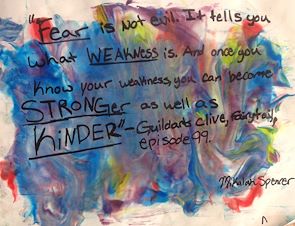 "Fear is Not evil. It tells you
what WEAKNESS is. And once you
know your weakness, you can become
STRONGer as well as
KiNDER" - Guildarts Clive, Fairytail,
episode 99.
Mikalah Spencer